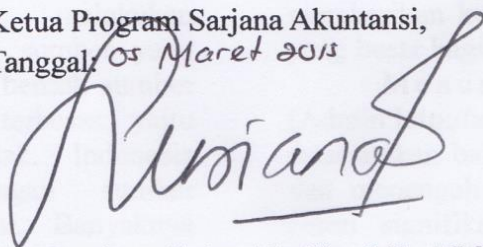 Ketua Program Sarjana Akuntansi,
Tanggal: 05 Maret 2015